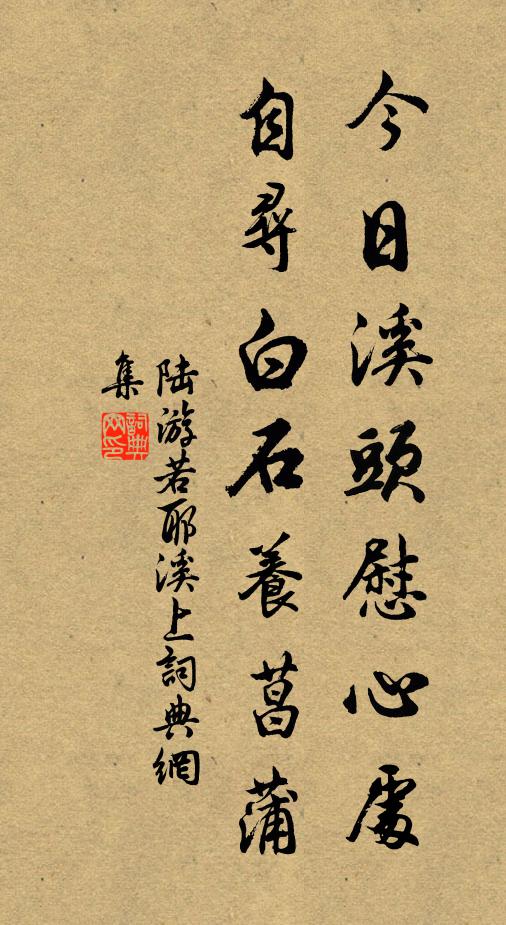 今日溪頭慰心處
自尋白石養菖蒲
陸游若耶溪上詞典網
集
詞典網印